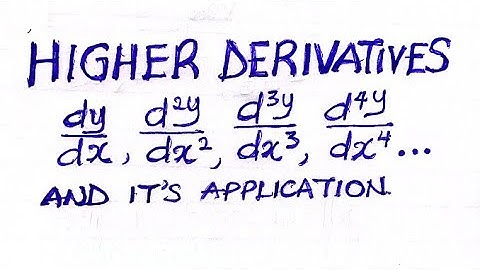 HIGHER DERIVATIVES
dy/dx, d²y/dx², d³y/dx³, d⁴y/dx⁴...
AND IT'S APPLICATION.